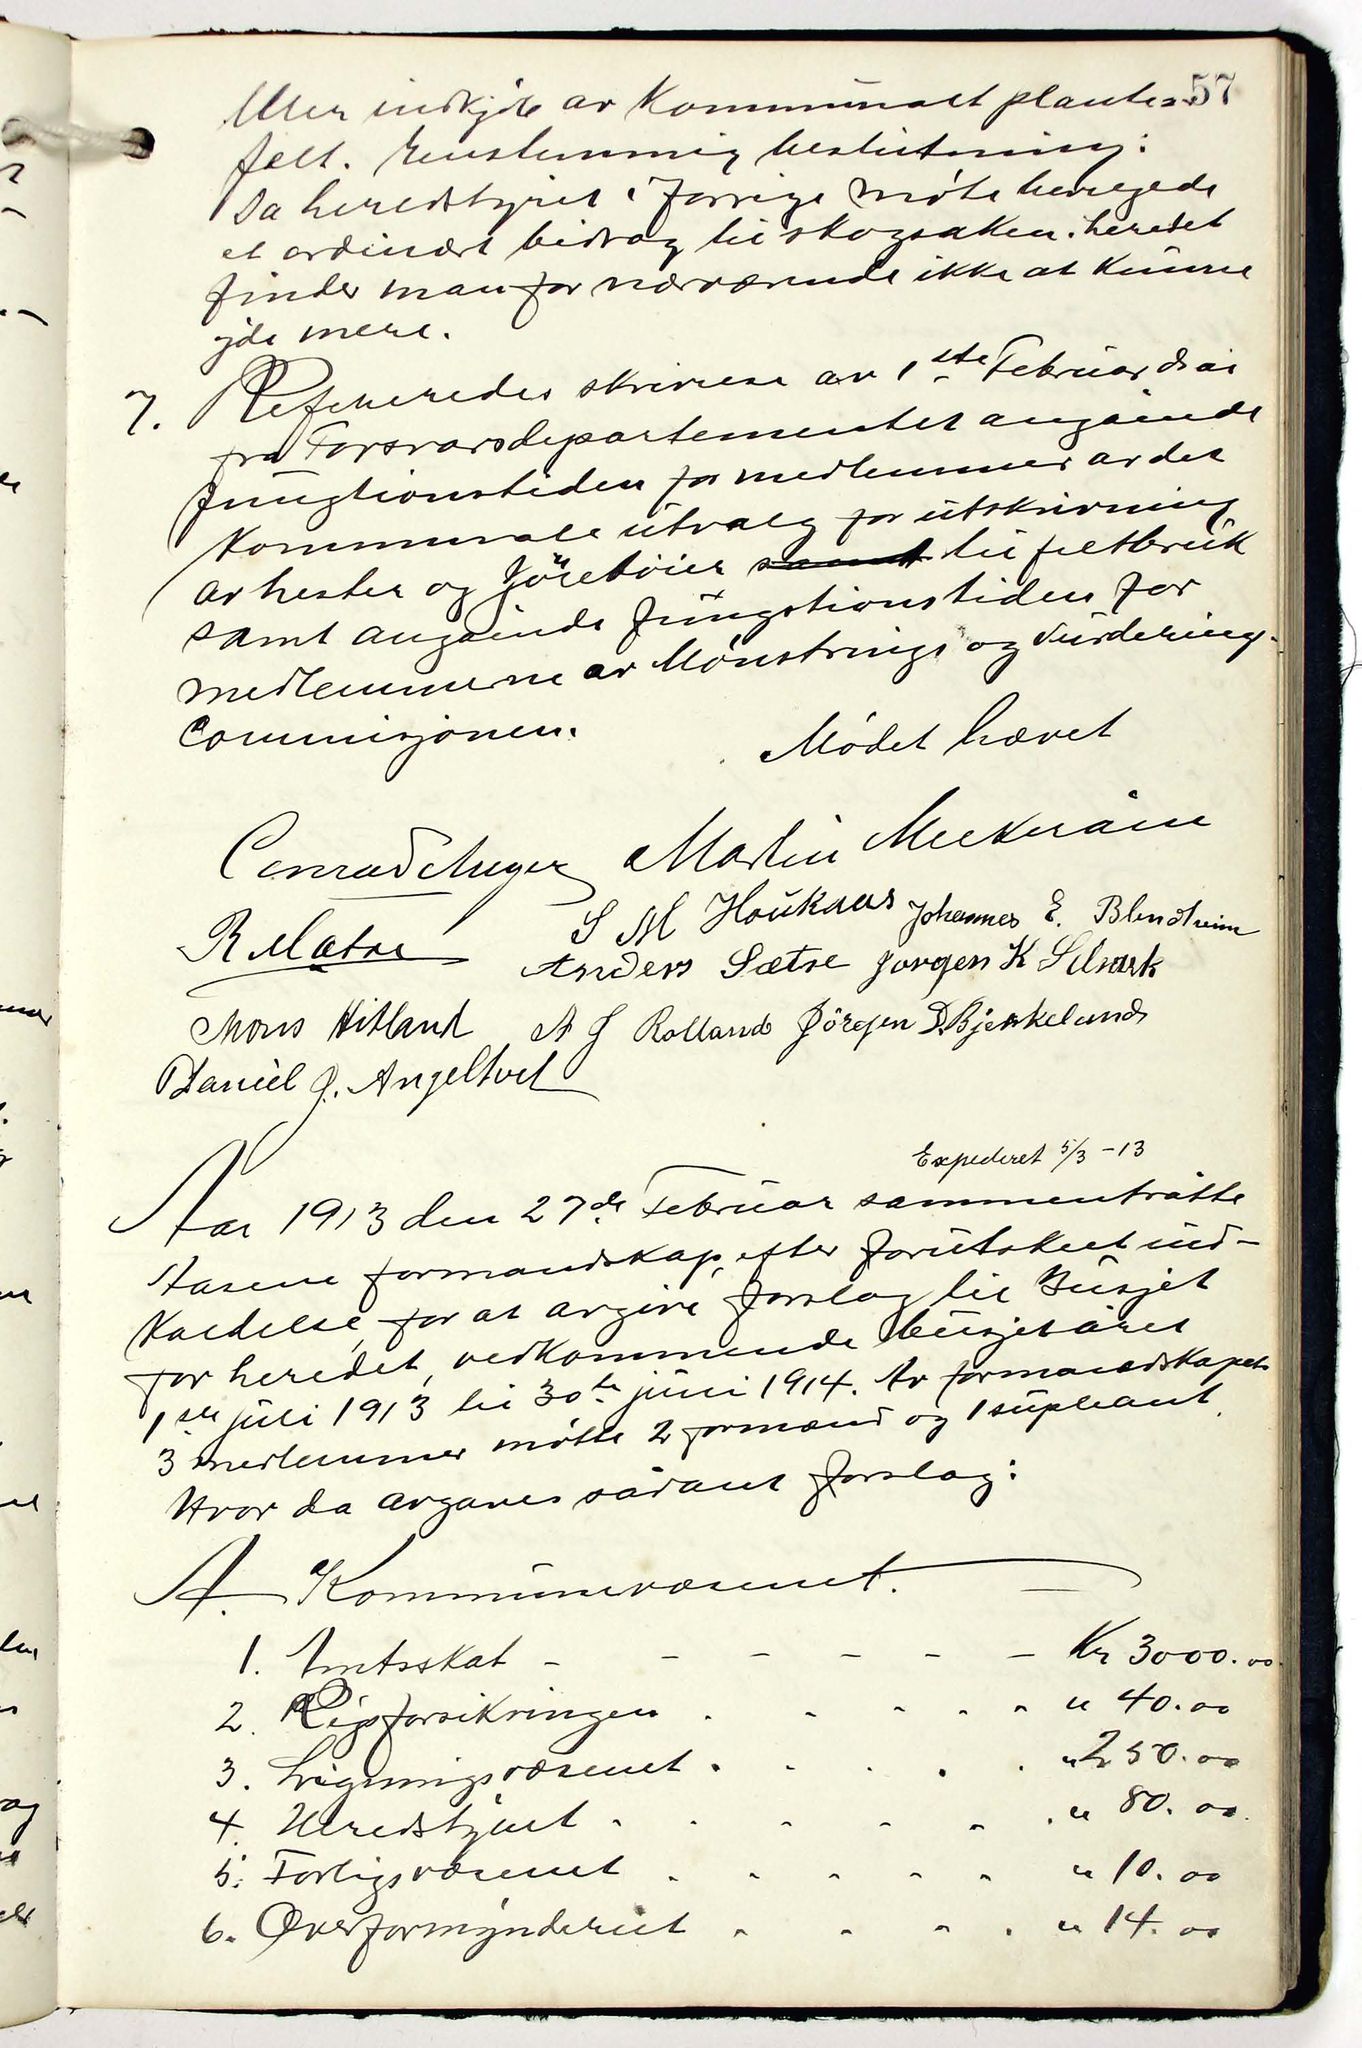 57
eller indkjøb av Kommunalt plante-
felt. Enstemmig beslutning:
Da heredstyret i forrige møte bevegede
et ordinært bidrag til skogsaken i heredet
finder man for nærværende ikke at kunne
yde mere.
7. Refereredes skrivelse av 1ste Februar d. år
fra Forsvarsdepartementet angående
fungtionstiden for medlemmer av det
Kommunale utvalg for utskrivning
av hester og kjøretøier samt til feltbruk
samt angående fungtionstiden for
medlemmerne av Mønstrings og Vurderings-
Commisjonen.
Mødet hævet
Conrad Mayer Martin
R Matre S M Haukaas Johannes E. Blindheim
Anders Sætre Jørgen K Selvark
Mons Hitland A J Rolland Jörgen D. Bjerkelund
Daniel J. Angeltvet
Expederet 5/3 -13
Aar 1913 den 27de Februar sammentråtte
Åsene formandskap, efter forutskeet ind-
kaldelse, for at avgive forslag til Busjet
for heredet, vedkommende busjetåret
1ste juli 1913 til 30te juni 1914. Av formandskapets
3 medlemmer møtte 2 formænd og 1 supleant.
Hvor da avgaves sådant forslag:
A. Kommunevæsenet.
1. Amtsskat - - - - - - Kr 3000.00
2. Rigsforsikringen . . . . . " 40.00
3. Ligningsvæsenet . . . . . " 250.00
4. Heredstyret . . . . . . " 80.00
5. Forligsvæsenet . . . . . " 10.00
6. Overformynderiet . . . . " 14.00